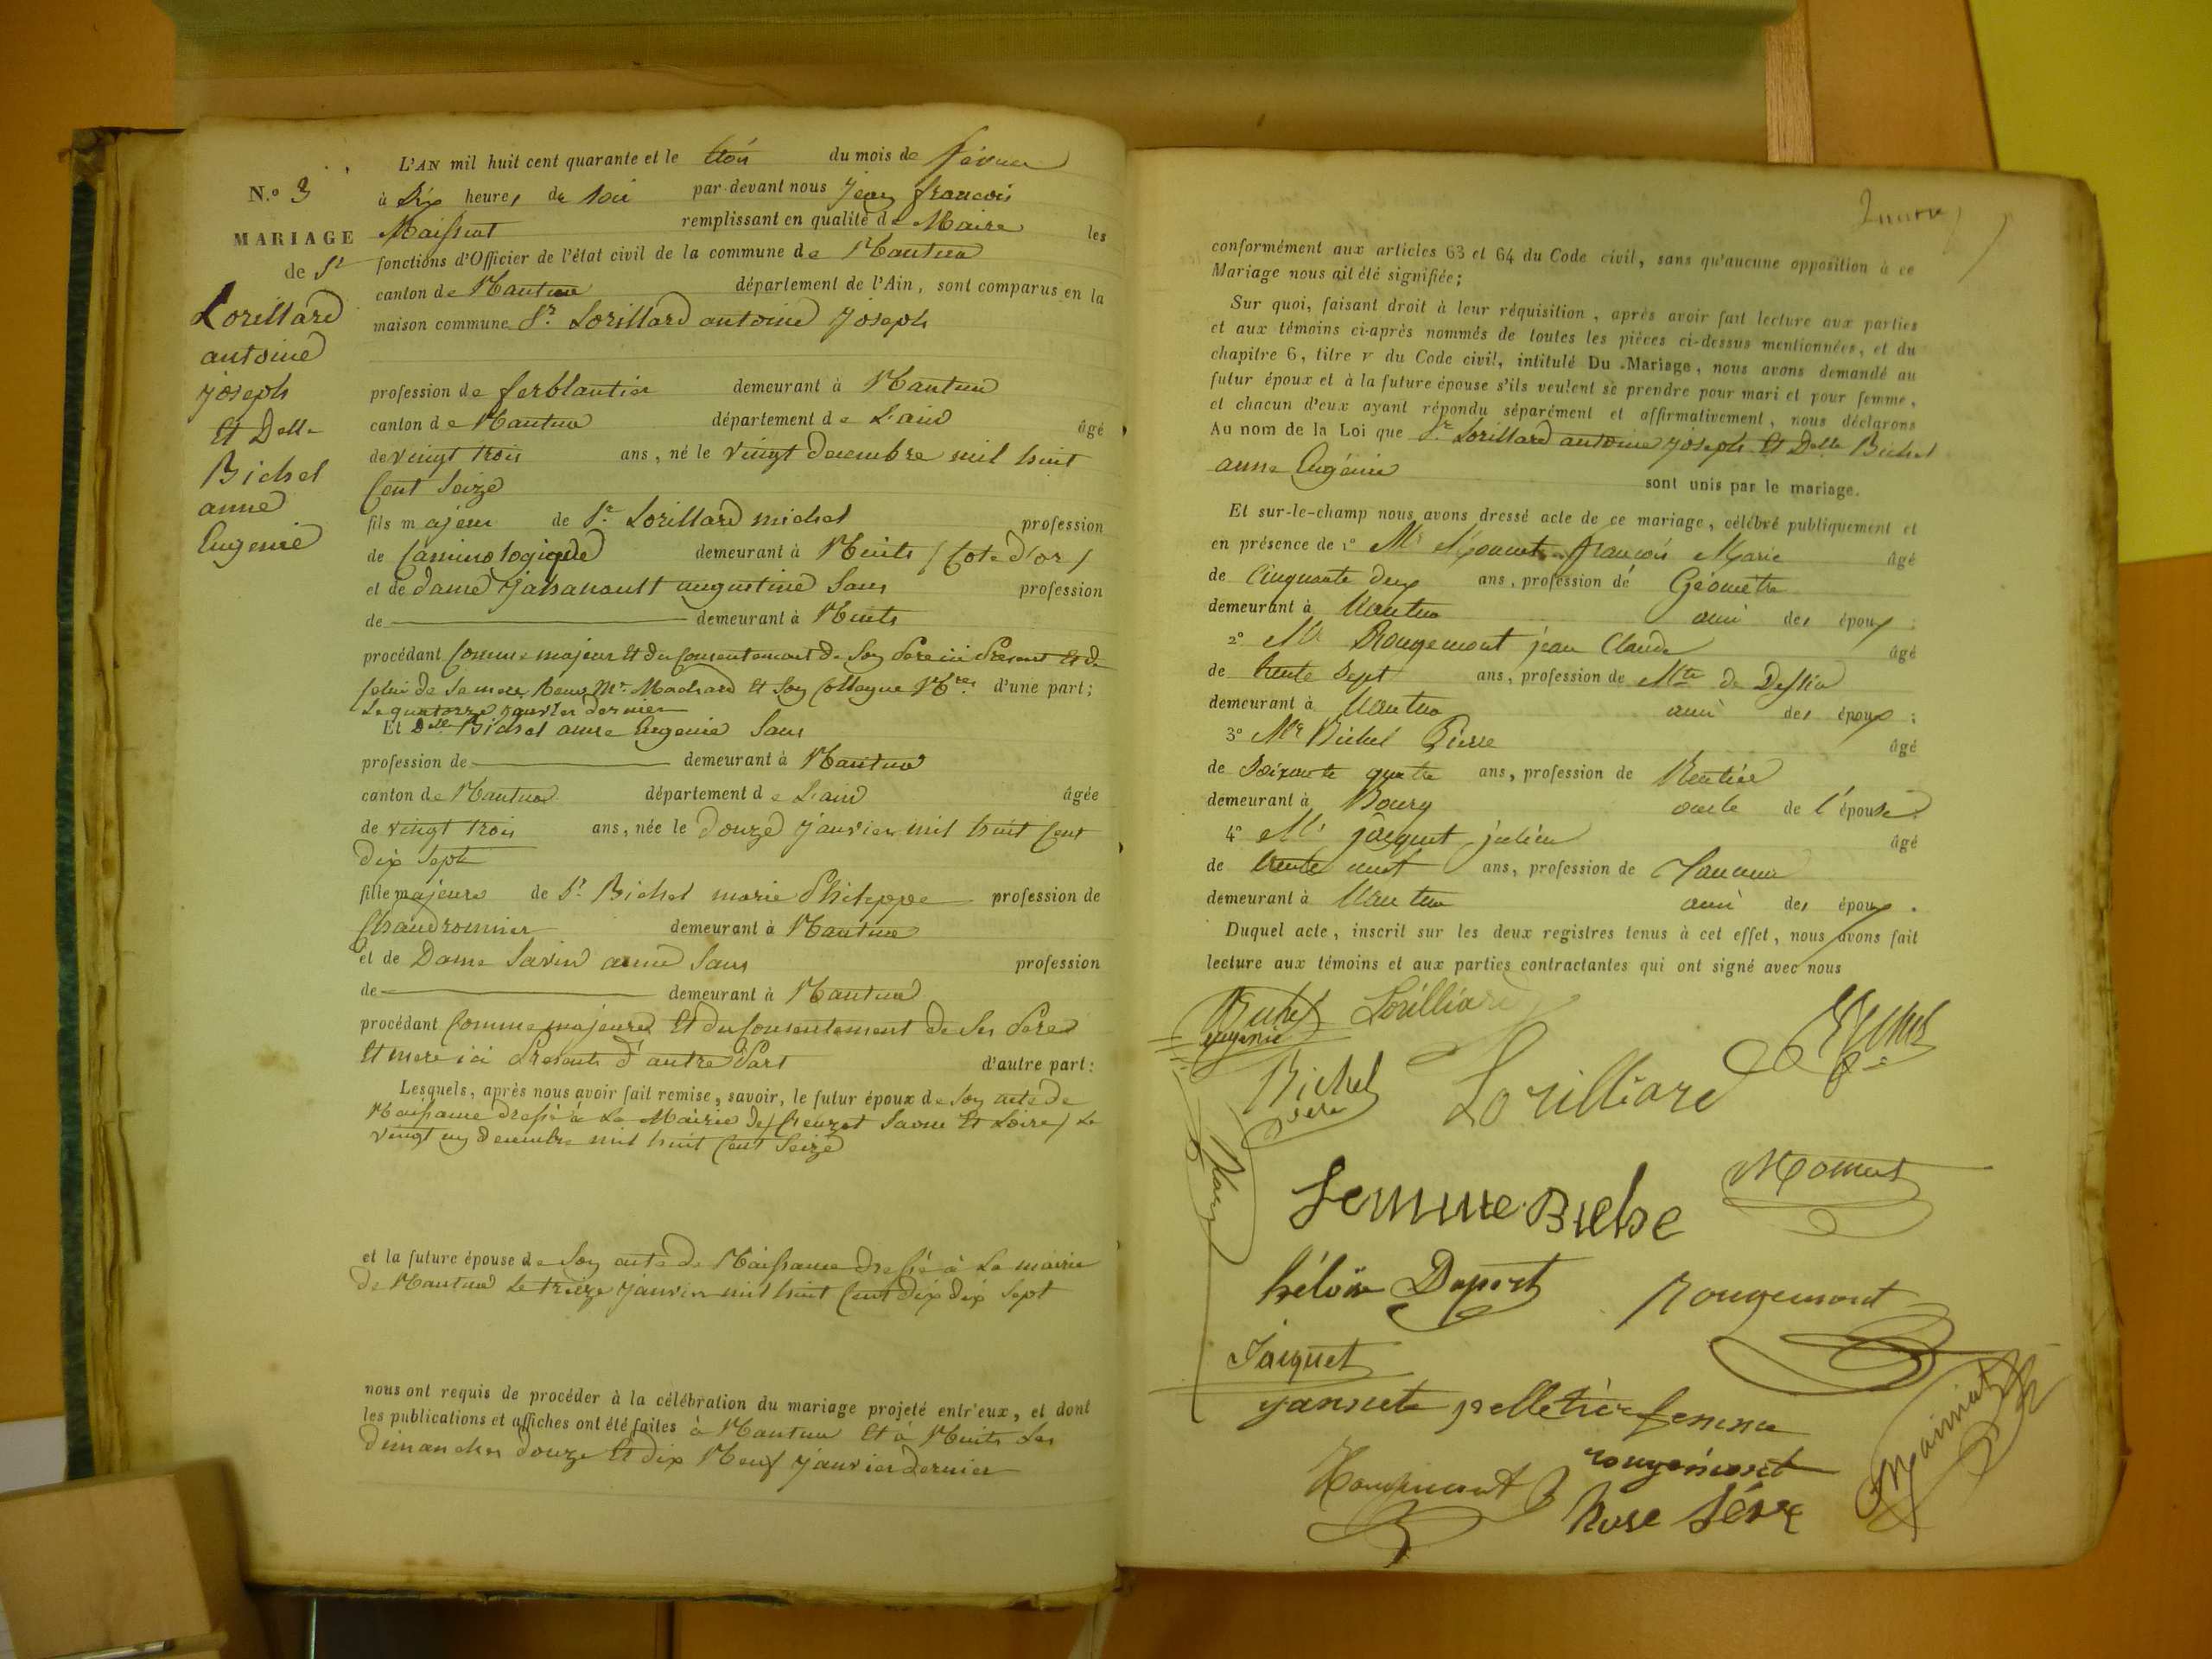 N.o 3
MARIAGE
de Sr
Lorillard
antoine
joseph
Et Delle
Bichel
anne
Eugenie
L'AN mil huit cent quarante et le trois du mois de fevrier
à Dix heures de soir par-devant nous Jean françois
Maissiat remplissant en qualité de Maire les
fonctions d'Officier de l'état civil de la commune de Nantua
canton de Nantua département de l'Ain, sont comparus en la
maison commune Sr. Lorillard antoine Joseph
profession de ferblantier demeurant à Nantua
canton de Nantua département de L'ain âgé
de vingt trois ans, né le vingt decembre mil huit
Cent Seize
fils majeur de Sr. Lorillard michel profession
de demeurant à Nuits (Cote d'or)
et de dame augustine Sans profession
de demeurant à Nuits
procédant Comme majeur Et du Consentement de Son Pere ici Present Et de
Celui de Sa mere Mr. Machard Et Son Collegue Nres. d'une part;
Le quatorze janvier dernier
Et Delle Bichel anne Eugenie Sans
profession de demeurant à Nantua
canton de Nantua département de L'ain âgée
de vingt trois ans, née le Douze Janvier mil huit Cent
Dix Sept
fille majeure de Sr. Bichel marie Philippe profession de
Chaudronnier demeurant à Nantua
et de Dame Savin anne Sans profession
de demeurant à Nantua
procédant Comme majeure Et du Consentement de Ses Pere
Et mere ici Presents d'autre Part d'autre part:
Lesquels, après nous avoir fait remise, savoir, le futur époux de Son acte de
Naissance dressé à La Mairie de (Creuzot Saone Et Loire) Le
vingt un decembre mil huit Cent Seize
et la future épouse de Son acte de Naissance dressé à La mairie
de Nantua Le treize Janvier mil huit Cent Dix Dix Sept
nous ont requis de procéder à la célébration du mariage projeté entr'eux, et dont
les publications et affiches ont été faites à Nantua Et a Nuits Les
Dimanches Douze Et Dix Neuf Janvier dernier
conformément aux articles 63 et 64 du Code civil, sans qu'aucune opposition à ce
Mariage nous ait été signifiée;
Sur quoi, faisant droit à leur réquisition, après avoir fait lecture aux parties
et aux témoins ci-après nommés de toutes les pièces ci-dessus mentionnées, et du
chapitre 6, titre v du Code civil, intitulé Du Mariage, nous avons demandé au
futur époux et à la future épouse s'ils veulent se prendre pour mari et pour femme,
et chacun d'eux ayant répondu séparément et affirmativement, nous déclarons
Au nom de la Loi que Sr. Lorillard antoine joseph Et Delle Bichel
anne Eugénie sont unis par le mariage.
Et sur-le-champ nous avons dressé acte de ce mariage, célébré publiquement et
en présence de 1o Mr françois Marie âgé
de Cinquante deux ans, profession de Géomètre
demeurant à Nantua ami des époux;
2o Mr Rougemont jean Claude âgé
de trente Sept ans, profession de Mtre de Dessin
demeurant à Nantua ami des époux;
3o Mr Bichel Pierre âgé
de Soixante quatre ans, profession de Rentier
demeurant à Bourg oncle de l'épouse
4o Mr jacquet julien âgé
de trente neuf ans, profession de Tanneur
demeurant à Nantua ami des époux.
Duquel acte, inscrit sur les deux registres tenus à cet effet, nous avons fait
lecture aux témoins et aux parties contractantes qui ont signé avec nous
Bichel Lorilliard
eugenie
Bichel Lorilliard
père
femme Biche
héloïse Duport Rougemont
Jacquet
pelletier femme
rougemont
Rougemont Rose Sève